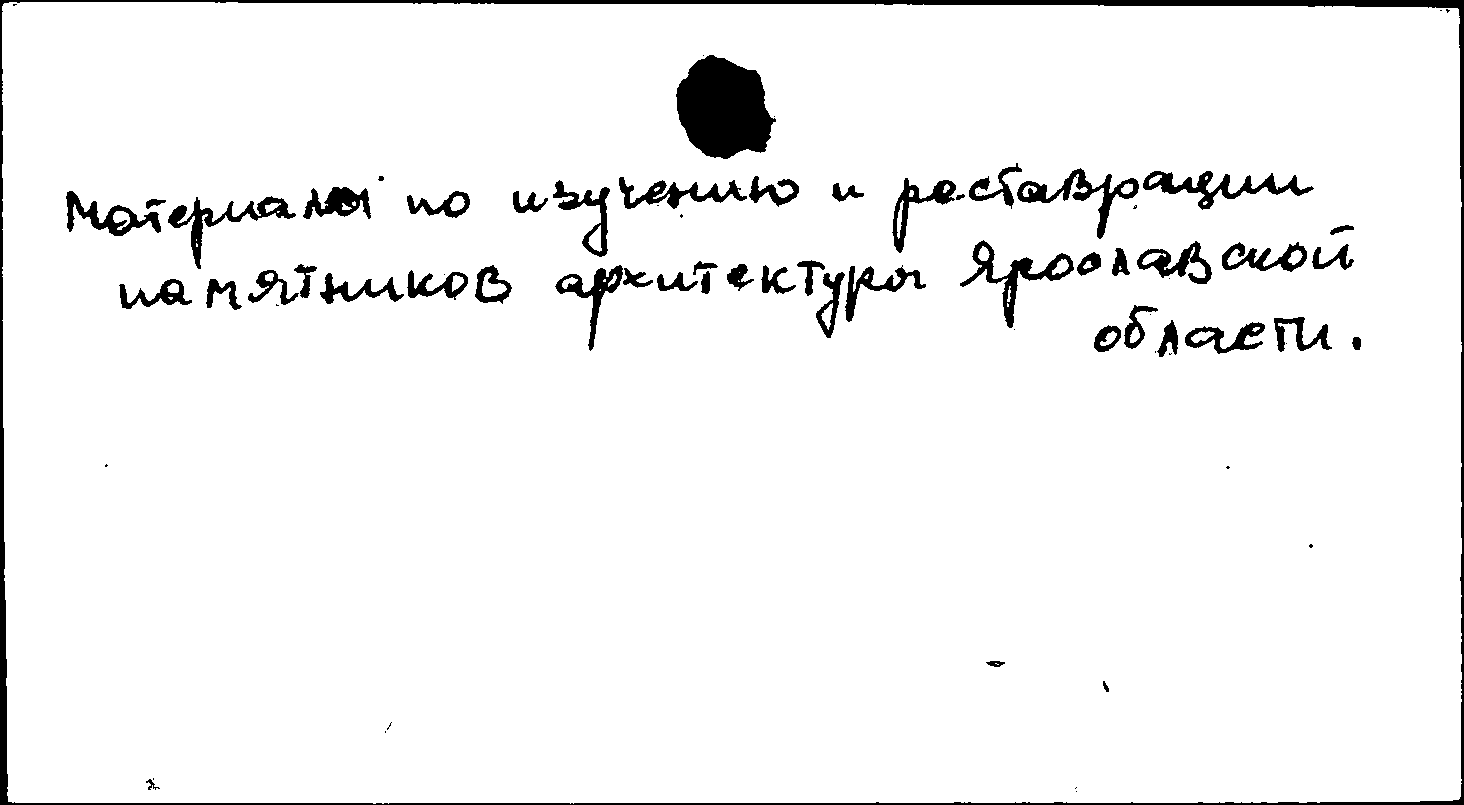 Материалы по изучению и реставрации
памятников архитектуры Ярославской
области.